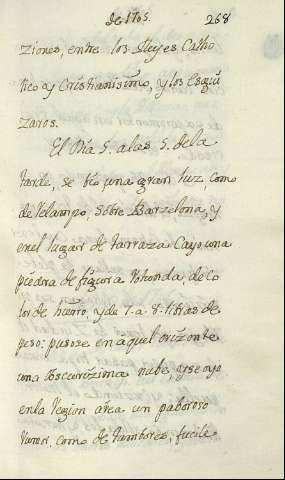 de 1705.
268
ziones, entre los Reyes Catho
lico y Cristianisimo, y los Esguí
zaros.
El Dia 5. a las 5. de la
tarde, se vio, una gran luz, como
de relampo, sobre Barzelona, y
en el lugar de tarraza Cayo una
piedra de figura rohonda, de co
lor de hierro, y de 7. a 8. libras de
peso: pusose en aquel orizonte
una obscurizima nube, y se oyo
en la region aerea un paboroso
rumor, como de tambores, fucile